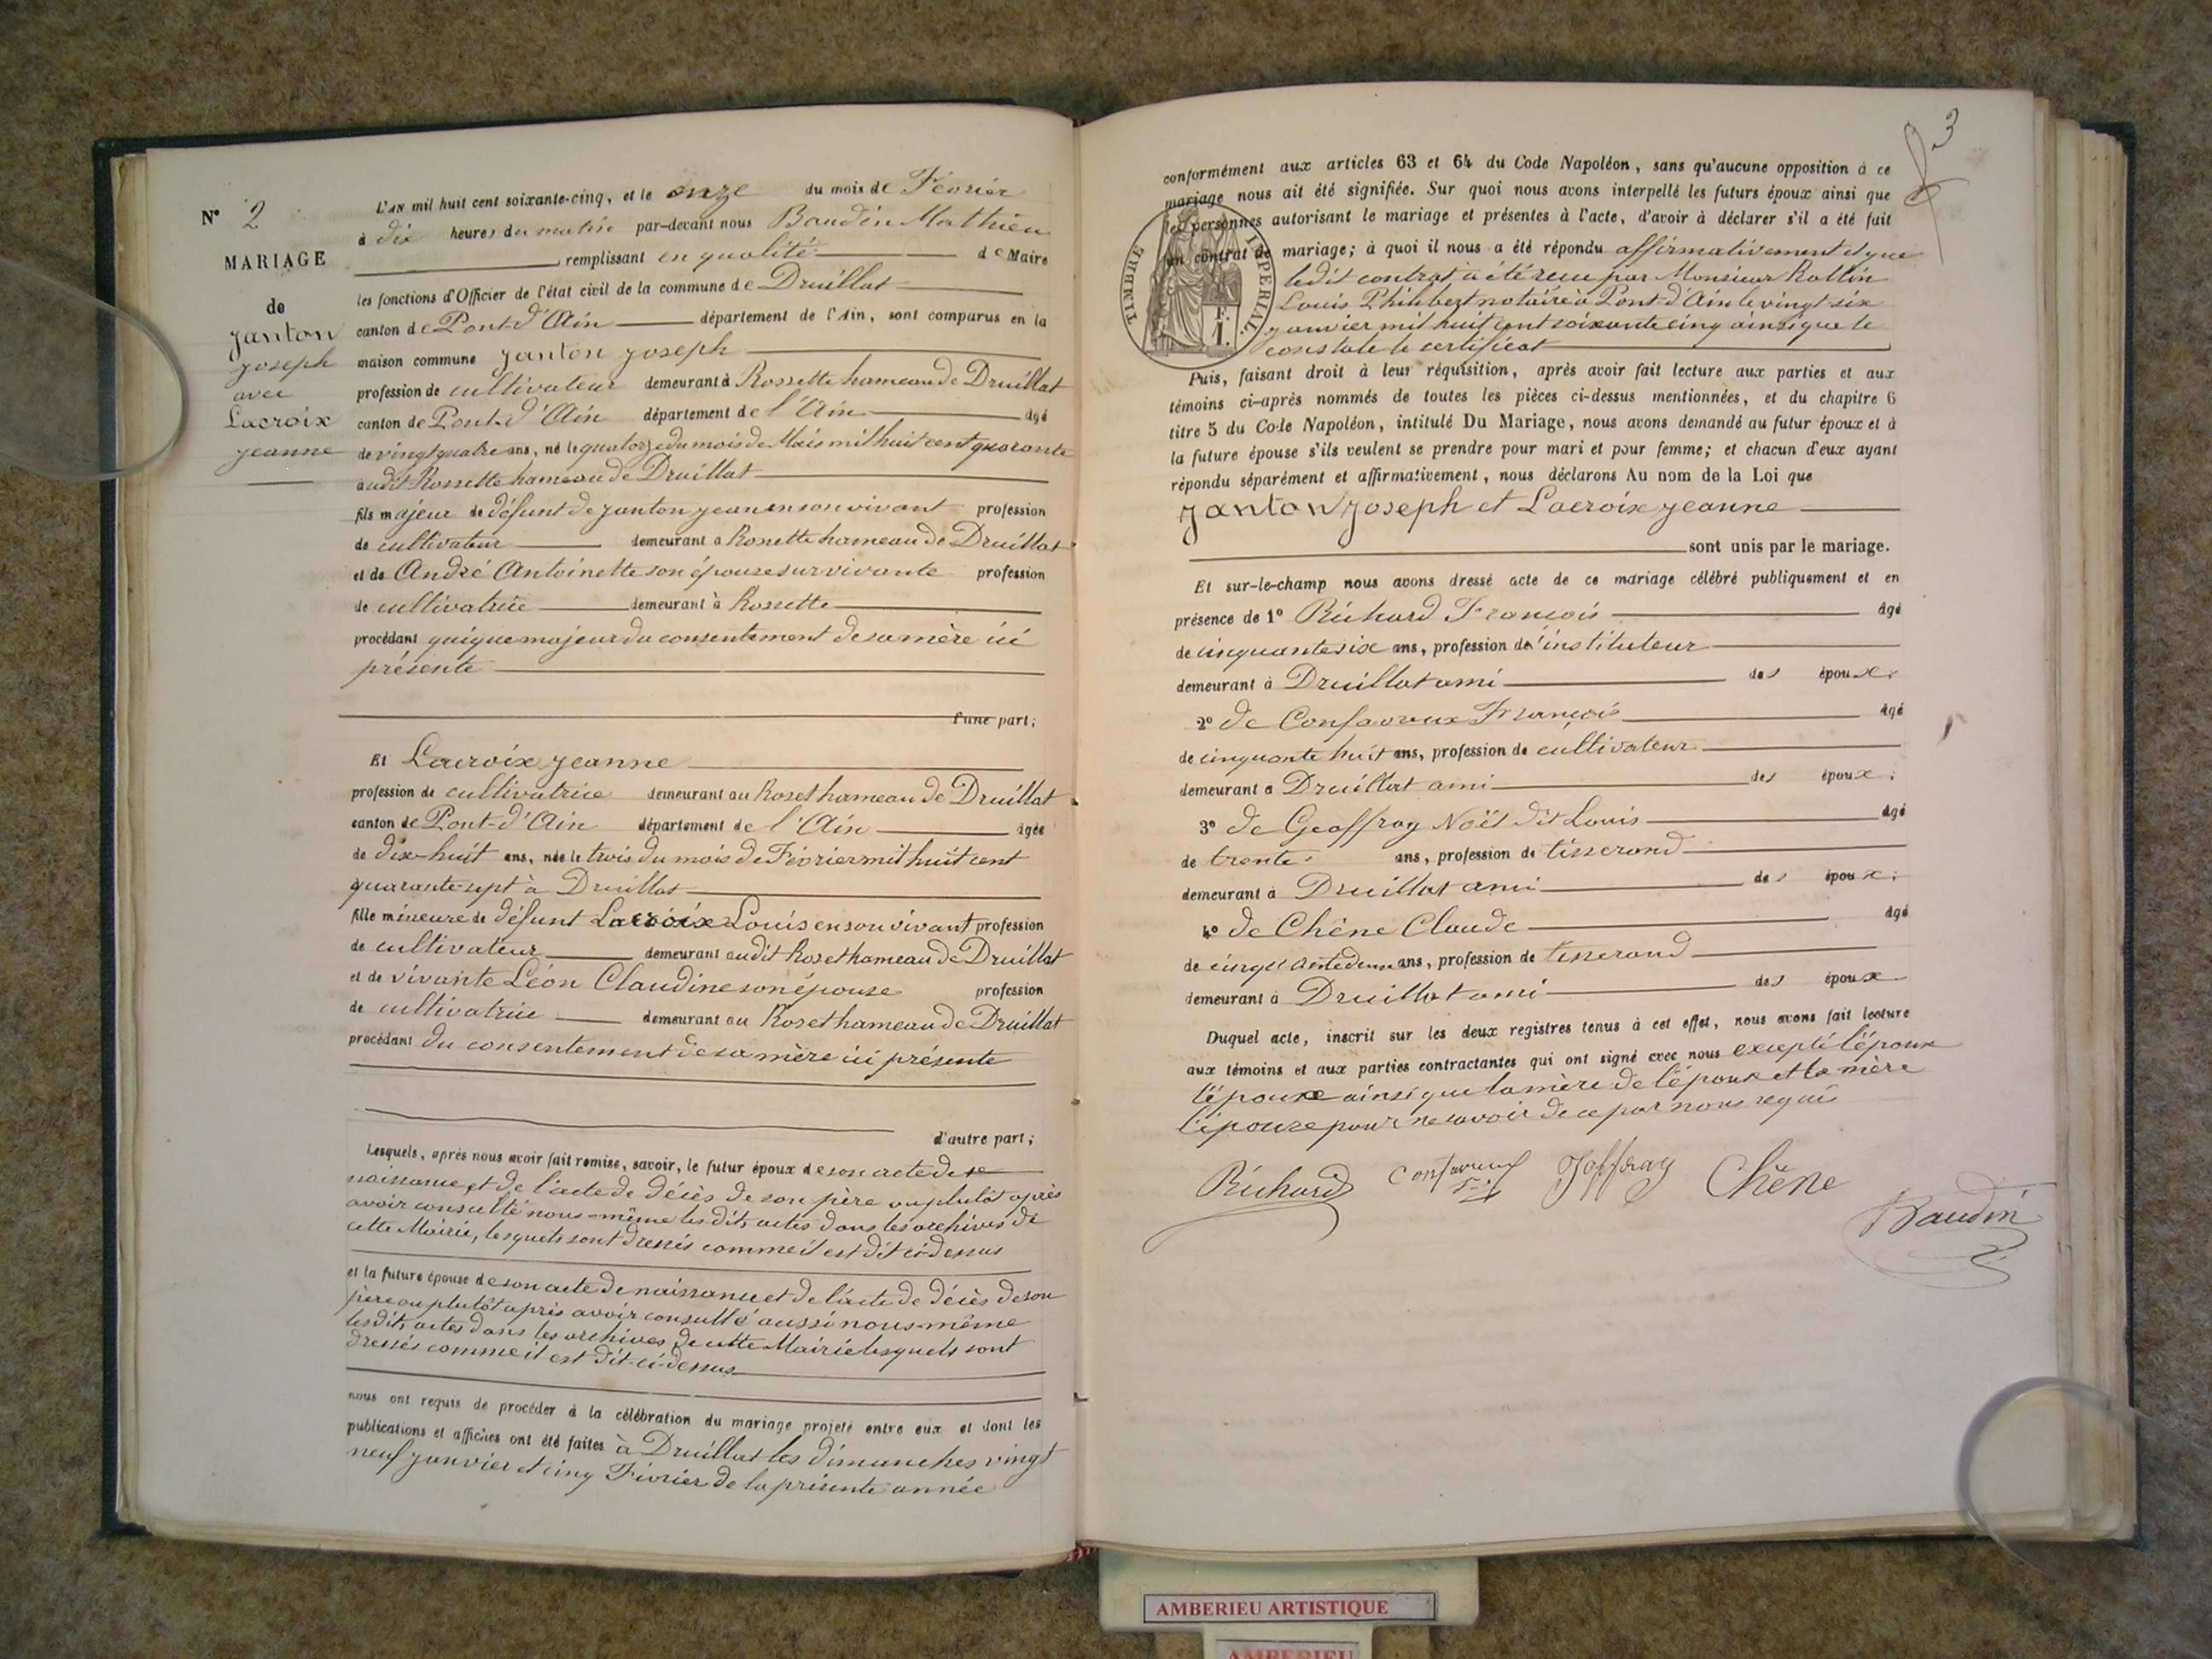 N° 2
MARIAGE
de
Janton
Joseph
avec
Lacroix
Jeanne
L'AN mil huit cent soixante-cinq, et le onze du mois de Février
à dix heures du matin par-devant nous Baudin Mathieu
remplissant en qualité de Maire
les fonctions d'Officier de l'état civil de la commune de Druillat
canton de Pont-d'Ain département de l'Ain, sont comparus en la
maison commune Janton Joseph
profession de cultivateur demeurant à Rossette hameau de Druillat
canton de Pont-d'Ain département de l'Ain âgé
de vingt quatre ans, né le quatorze du mois de Mais mil huit cent quarante
audit Rossette hameau de Druillat
fils majeur de défunt de Janton Jean en son vivant profession
de cultivateur demeurant à Rossette hameau de Druillat
et de André Antoinette son épouse survivante profession
de cultivatrice demeurant à Rossette
procédant quique majeur du consentement de sa mère ici
présente
d'une part;
Et Lacroix Jeanne
profession de cultivatrice demeurant au Roset hameau de Druillat
canton de Pont-d'Ain département de l'Ain âgée
de dix-huit ans, née le trois du mois de Février mil huit cent
quarante-sept à Druillat
fille mineure de défunt Lacroix Louis en son vivant profession
de cultivateur demeurant audit Roset hameau de Druillat
et de vivante Léon Claudine son épouse profession
de cultivatrice demeurant au Roset hameau de Druillat
procédant du consentement de sa mère ici présente
d'autre part;
Lesquels, après nous avoir fait remise, savoir, le futur époux de son acte de
naissance et de l'acte de décès de son père ou plutôt après
avoir consulté nous-même les dits actes dans les archives de
cette Mairie, lesquels sont dressés comme il est dit ci-dessus
et la future épouse de son acte de naissance et de l'acte de décès de son
père ou plutôt après avoir consulté aussi nous-même
les dits actes dans les archives de cette Mairie lesquels sont
dressés comme il est dit-ci-dessus
nous ont requis de procéder à la célébration du mariage projeté entre eux et dont les
publications et affiches ont été faites à Druillat les dimanches vingt
neuf janvier et cinq Février de la présente année
3
conformément aux articles 63 et 64 du Code Napoléon, sans qu'aucune opposition à ce
mariage nous ait été signifiée. Sur quoi nous avons interpellé les futurs époux ainsi que
les personnes autorisant le mariage et présentes à l'acte, d'avoir à déclarer s'il a été fait
un contrat de mariage; à quoi il nous a été répondu affirmativement et que
ledit contrat a été reçu par Monsieur Rollin
Louis Philibert notaire à Pont-d'Ain le vingt six
janvier mil huit cent soixante cinq ainsi que le
constate le certificat
TIMBRE IMPERIAL.
F.
1.
Puis, faisant droit à leur réquisition, après avoir fait lecture aux parties et aux
témoins ci-après nommés de toutes les pièces ci-dessus mentionnées, et du chapitre 6
titre 5 du Code Napoléon, intitulé Du Mariage, nous avons demandé au futur époux et à
la future épouse s'ils veulent se prendre pour mari et pour femme; et chacun d'eux ayant
répondu séparément et affirmativement, nous déclarons Au nom de la Loi que
Janton Joseph et Lacroix Jeanne
sont unis par le mariage.
Et sur-le-champ nous avons dressé acte de ce mariage célébré publiquement et en
présence de 1° Richard François âgé
de cinquante six ans, profession de l'instituteur
demeurant à Druillat ami des époux.
2° de Confavreux François âgé
de cinquante huit ans, profession de cultivateur
demeurant à Druillat ami des époux;
3° de Geoffray Noël dit Louis âgé
de trente ans, profession de tisserand
demeurant à Druillat ami des époux;
4° de Chêne Claude âgé
de cinquante deux ans, profession de tisserand
demeurant à Druillat ami des époux
Duquel acte, inscrit sur les deux registres tenus à cet effet, nous avons fait lecture
aux témoins et aux parties contractantes qui ont signé avec nous excepté l'époux
l'épouse ainsi que la mère de l'époux et la mère
l'épouse pour ne savoir de ce par nous requis
Richard Confavreux Joffray Chêne
Baudin
AMBERIEU ARTISTIQUE
AMBERIEU